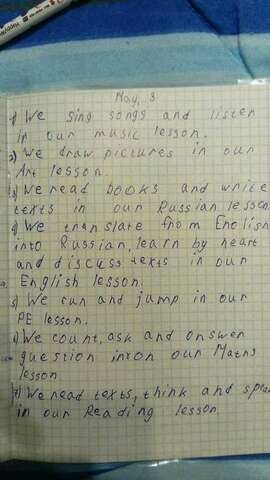 May, 3
1) We sing songs and listen
in our music lesson.
2) We draw pictures in our
Art lesson.
3) We read books and write
texts in our Russian lesson
4) We translate from English
into Russian, learn by heart
and discuss texts in our
English lesson.
5) We run and jump in our
PE lesson.
6) We count, ask and answer
question in our Maths
lesson
7) We read texts, think and
in our Reading lesson